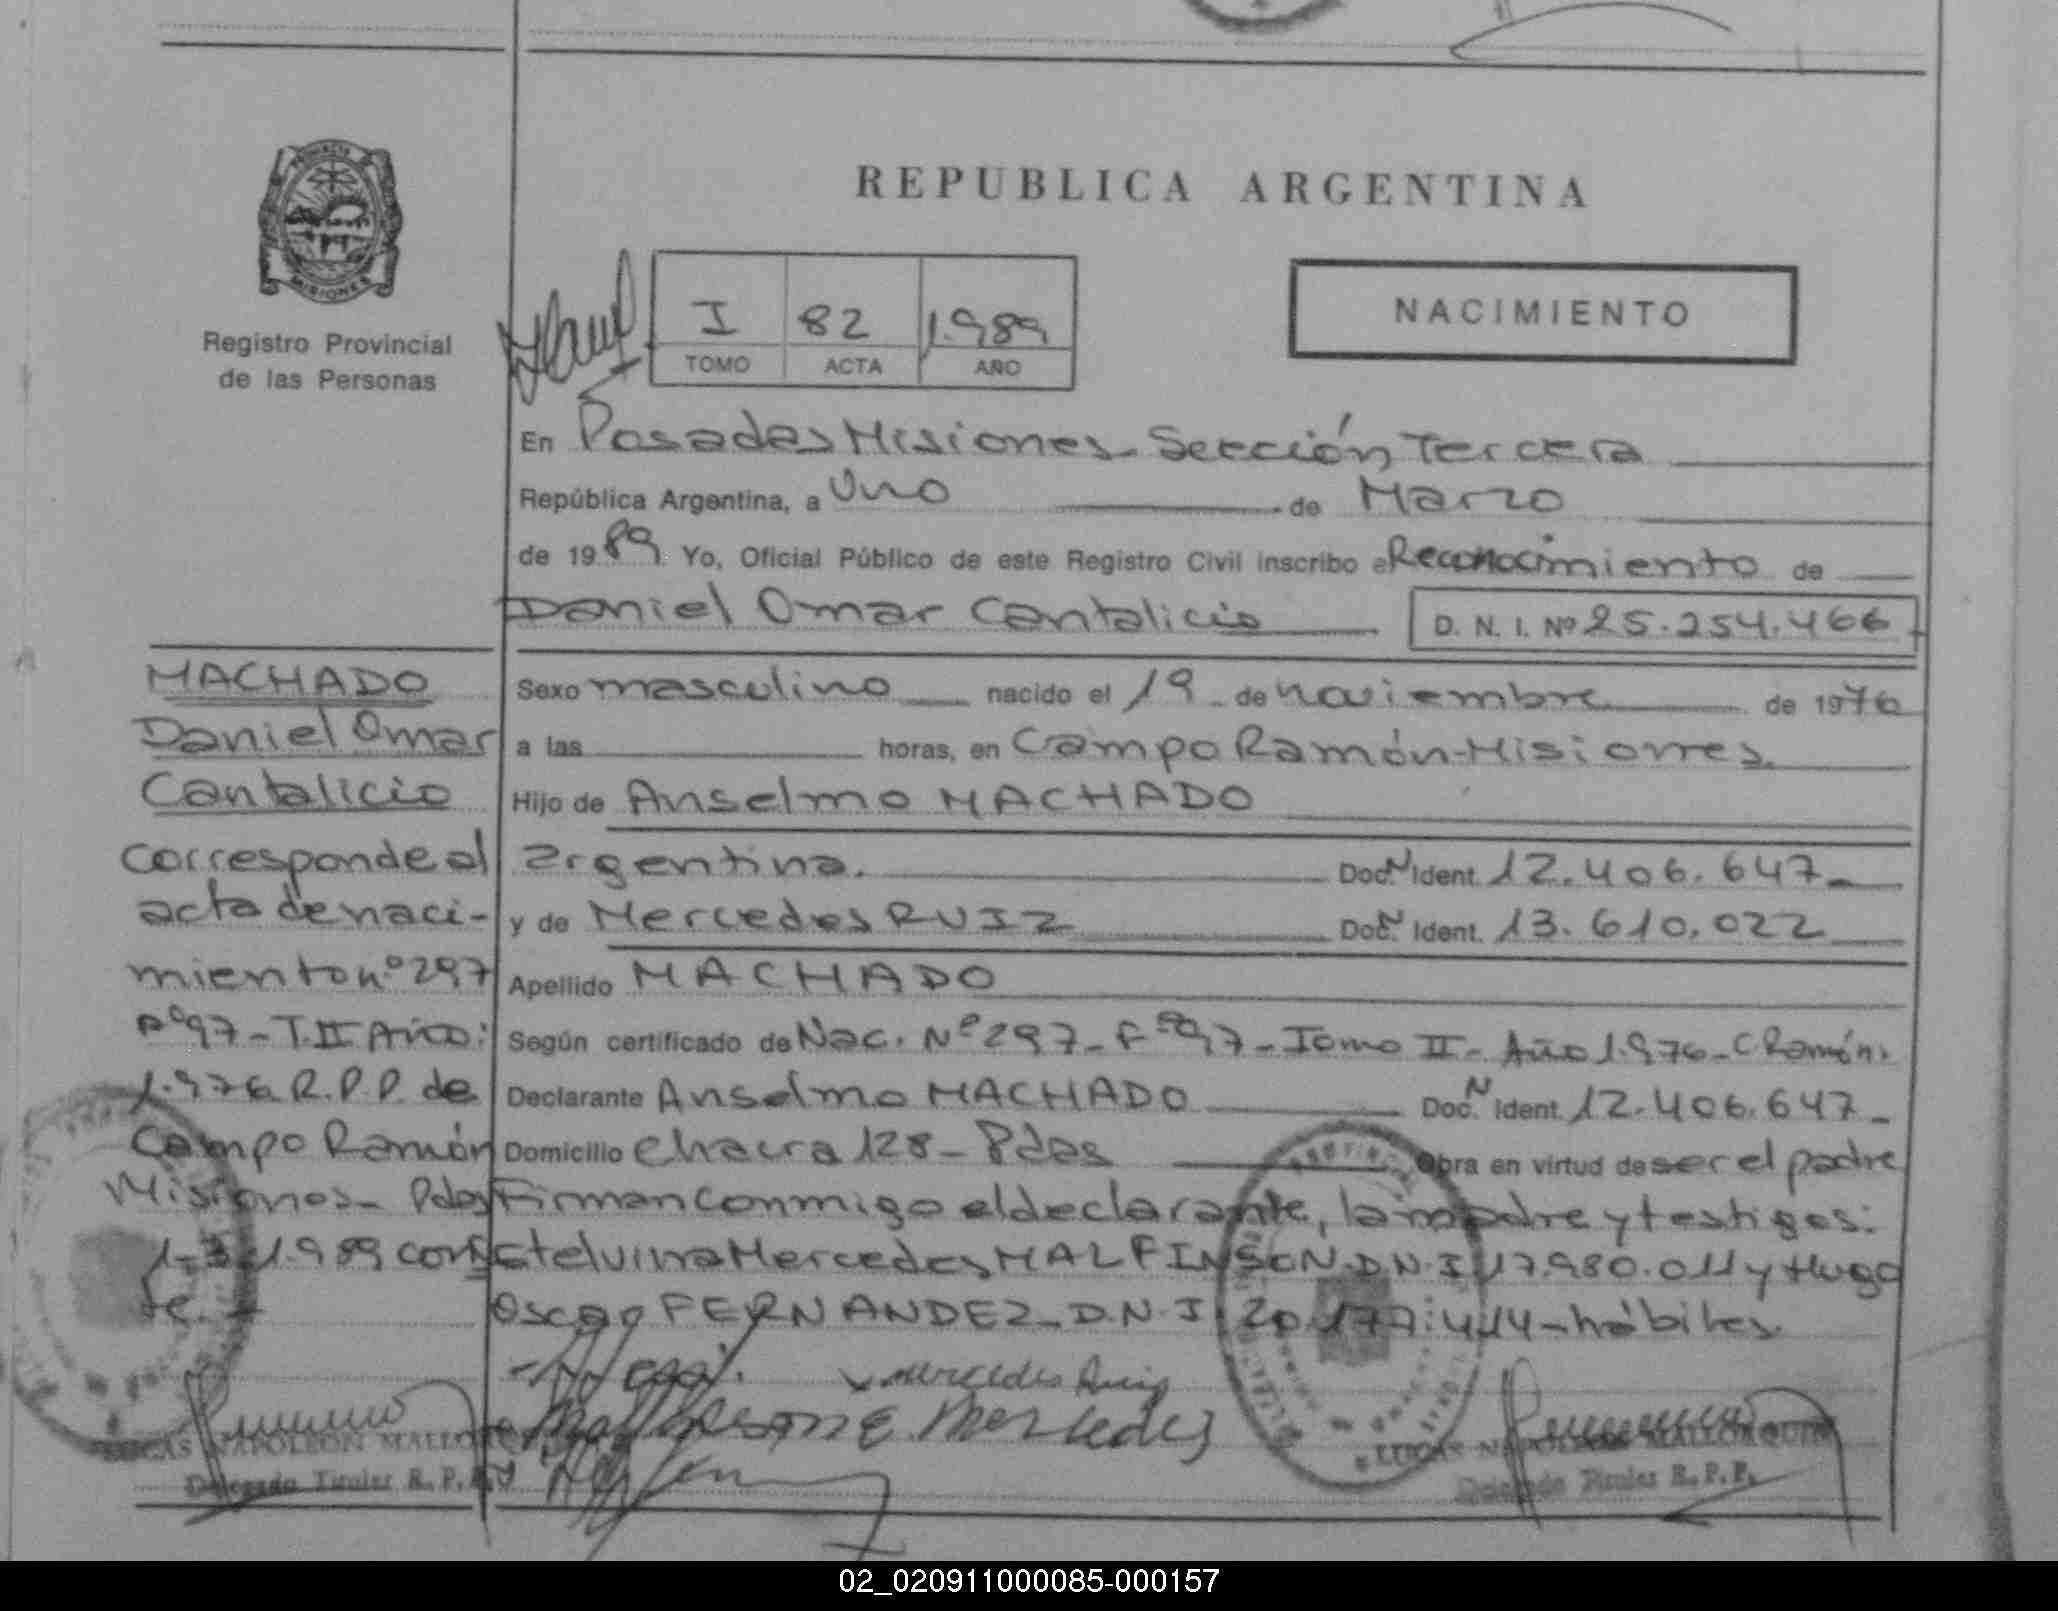 REPUBLICA ARGENTINA
PROVINCIA
MISIONES
Registro Provincial
de las Personas
I 82 1.989
TOMO ACTA AÑO
NACIMIENTO
En Posadas Misiones Sección Tercera
República Argentina, a Uno de Marzo
de 1989. Yo, Oficial Público de este Registro Civil inscribo el Reconocimiento de
Daniel Omar Cantalicio D. N. I. Nº 25.254.466
Sexo masculino nacido el 19 de noviembre de 1976
a las horas, en Campo Ramón-Misiones
Hijo de Anselmo MACHADO
argentina. Doc. N Ident. 12.406.647-
y de Mercedes RUIZ Doc. N Ident. 13.610.022
Apellido MACHADO
Según certificado de Nac. Nº 297-Fº97-Tomo II-Año 1.976-C Ramón.
Declarante Anselmo MACHADO Doc. N Ident. 12.406.647-
Domicilio Chacra 128-Pdas Obra en virtud de ser el padre
Firman conmigo el declarante, la madre y testigos:
Etelvina Mercedes MALFINSON D.N.I. 17.980.011 y Hugo
Oscar FERNANDEZ-D.N.I. 20.177.414-hábiles
MACHADO
Daniel Omar
Cantalicio
Corresponde al
acta de naci-
miento nº 297
Fº97-T.II Año:
1.976 R.P.P. de
Campo Ramón
Misiones- Pdas
1-3-1.989 Cons
te.
Mercedes Ruiz
E. Mercedes
LUCAS NAPOLEON MALLORQUIN
Delegado Titular R. P. P.
LUCAS NAPOLEON MALLORQUIN
Delegado Titular R. P. P.
02_020911000085-000157